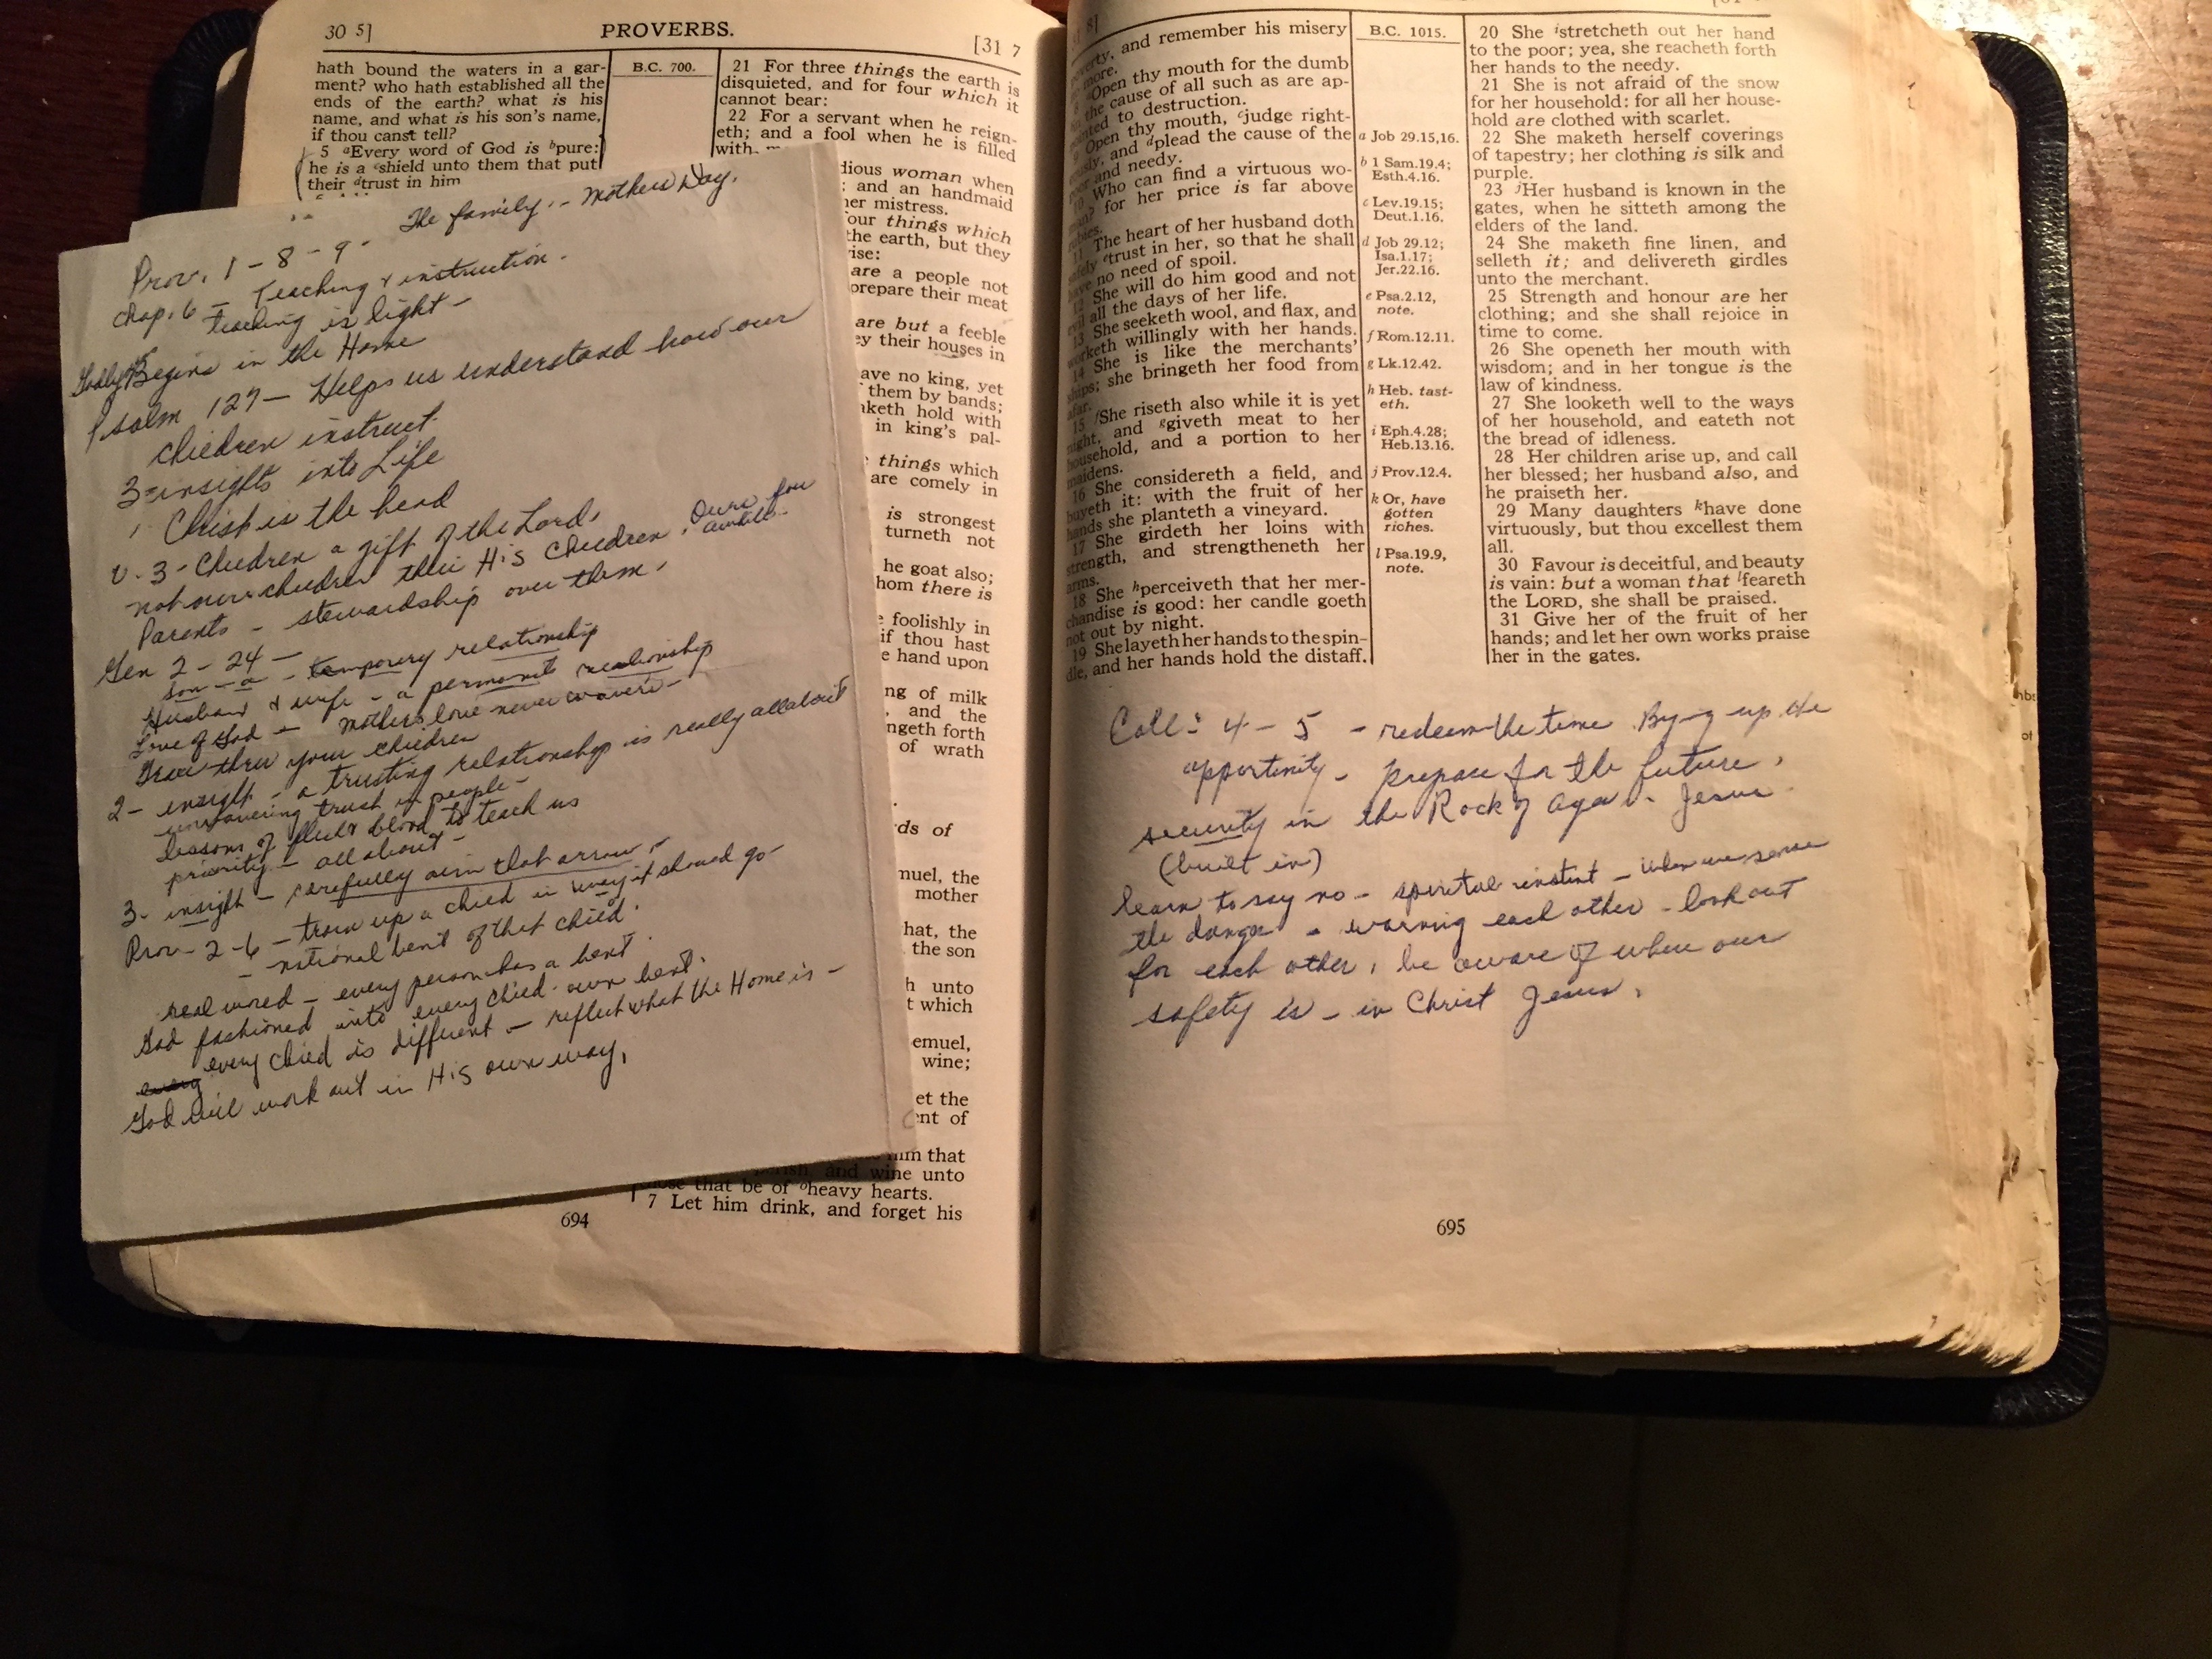 30 5]
PROVERBS.
[31 7
hath bound the waters in a gar-
ment? who hath established all the
ends of the earth? what is his
name, and what is his son's name,
if thou canst tell?
5 aEvery word of God is bpure:
he is a cshield unto them that put
their dtrust in him
B.C. 700.
21 For three things the earth is
disquieted, and for four which it
cannot bear:
22 For a servant when he reign-
eth; and a fool when he is filled
with
dious woman when
; and an handmaid
her mistress.
four things which
the earth, but they
rise:
are a people not
prepare their meat
are but a feeble
ey their houses in
ave no king, yet
them by bands;
aketh hold with
in king's pal-
things which
are comely in
is strongest
turneth not
he goat also;
hom there is
foolishly in
if thou hast
e hand upon
ng of milk
, and the
ngeth forth
of wrath
ds of
muel, the
mother
hat, the
the son
h unto
t which
emuel,
wine;
et the
ent of
him that
and wine unto
those that be of bheavy hearts.
7 Let him drink, and forget his
694
The family - Mothers Day.
Prov. 1 - 8 - 9 -
Chap. 6 - Teaching & instruction.
teaching is light -
Begins in the Home
Psalm 127 - Helps us understand how our
children instruct.
3 insights into Life
1 Christ is the head
V. 3 - Children a gift of the Lord,
not our children their His Children. Ours for
awhile.
Parents - stewardship over them.
Gen 2 - 24 -
son - a - temporary relationship
Husband & wife - a permanent relationship
Love of God - Mothers love never wavers -
Grow thru your children
2 - insight - a trusting relationship is really all about
unwavering trust in people -
lessons of flesh & blood to teach us
priority - all about -
3 - insight - carefully aim that arrow -
Prov - 2 - 6 - train up a child in way it should go -
- national bent of that child.
real word - every person has a bent.
God fashioned into every child - own bent.
every every child is different - reflect what the Home is -
God will work out in His own way.
8]
poverty, and remember his misery
no more.
8 aOpen thy mouth for the dumb
bin the cause of all such as are ap-
pointed to destruction.
9 Open thy mouth, cjudge right-
eously, and dplead the cause of the
poor and needy.
10 Who can find a virtuous wo-
man? for her price is far above
rubies.
11 The heart of her husband doth
safely etrust in her, so that he shall
have no need of spoil.
12 She will do him good and not
evil all the days of her life.
13 She seeketh wool, and flax, and
worketh willingly with her hands.
14 She is like the merchants'
ships; she bringeth her food from
afar.
15 fShe riseth also while it is yet
night, and ggiveth meat to her
household, and a portion to her
maidens.
16 She considereth a field, and
buyeth it: with the fruit of her
hands she planteth a vineyard.
17 She girdeth her loins with
strength, and strengtheneth her
arms.
18 She hperceiveth that her mer-
chandise is good: her candle goeth
not out by night.
19 She layeth her hands to the spin-
dle, and her hands hold the distaff.
B.C. 1015.
a Job 29.15,16.
b 1 Sam.19.4;
Esth.4.16.
c Lev.19.15;
Deut.1.16.
d Job 29.12;
Isa.1.17;
Jer.22.16.
e Psa.2.12,
note.
f Rom.12.11.
g Lk.12.42.
h Heb. tast-
eth.
i Eph.4.28;
Heb.13.16.
j Prov.12.4.
k Or, have
gotten
riches.
l Psa.19.9,
note.
20 She istretcheth out her hand
to the poor; yea, she reacheth forth
her hands to the needy.
21 She is not afraid of the snow
for her household: for all her house-
hold are clothed with scarlet.
22 She maketh herself coverings
of tapestry; her clothing is silk and
purple.
23 jHer husband is known in the
gates, when he sitteth among the
elders of the land.
24 She maketh fine linen, and
selleth it; and delivereth girdles
unto the merchant.
25 Strength and honour are her
clothing; and she shall rejoice in
time to come.
26 She openeth her mouth with
wisdom; and in her tongue is the
law of kindness.
27 She looketh well to the ways
of her household, and eateth not
the bread of idleness.
28 Her children arise up, and call
her blessed; her husband also, and
he praiseth her.
29 Many daughters khave done
virtuously, but thou excellest them
all.
30 Favour is deceitful, and beauty
is vain: but a woman that lfeareth
the LORD, she shall be praised.
31 Give her of the fruit of her
hands; and let her own works praise
her in the gates.
Coll: 4 - 5 - redeem the time By-g up the
opportunity - prepare for the future,
security in the Rock of Ages - Jesus.
(built in)
learn to say no - spiritual instent - when we sense
the danger - warning each other - look out
for each other, be aware of where our
safety is - in Christ Jesus,
695